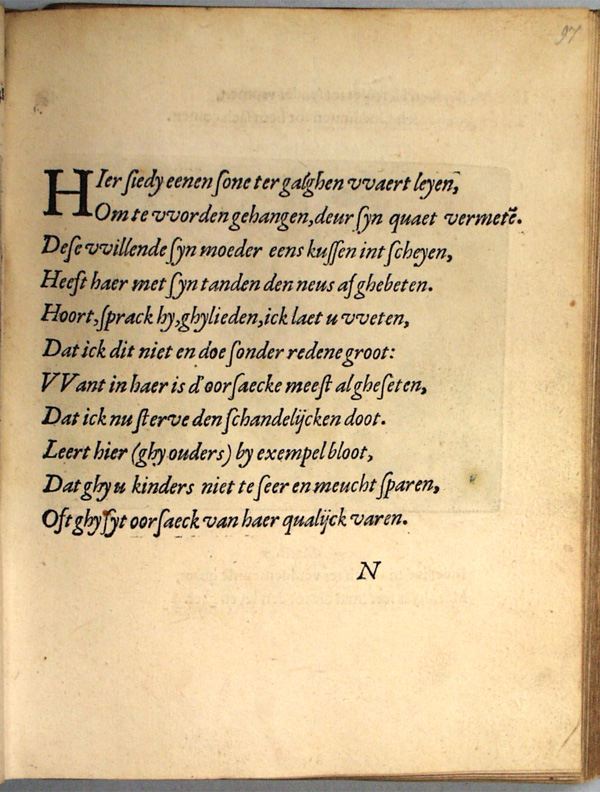 97
HIer siedy eenen sone ter galghen vvaert leyen,
Om te vvorden gehangen, deur syn quaet vermetē.
Dese vvillende syn moeder eens kussen int scheyen,
Heeft haer met syn tanden den neus afghebeten.
Hoort, sprack hy, ghylieden, ick laet u vveten,
Dat ick dit niet en doe sonder redene groot:
VVant in haer is d'oorsaecke meest al gheseten,
Dat ick nu sterve den schandelijcken doot.
Leert hier (ghy ouders) by exempel bloot,
Dat ghy u kinders niet te seer en meucht sparen,
Oft ghy syt oorsaeck van haer qualijck varen.
N